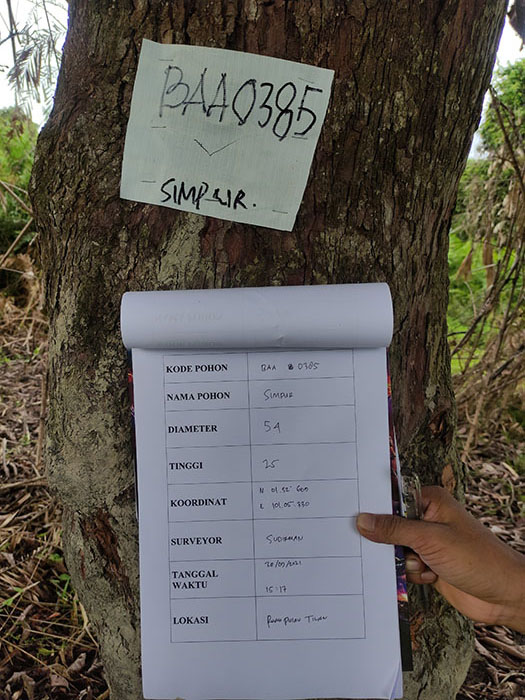 BAA0385
SIMPUR.
KODE POHON BAA 0385
NAMA POHON SIMPUR
DIAMETER 54
TINGGI 25
KOORDINAT N 01.52' 600
E 101.05.330
SURVEYOR SUDIRMAN
TANGGAL WAKTU 20/09/2021
15:17
LOKASI